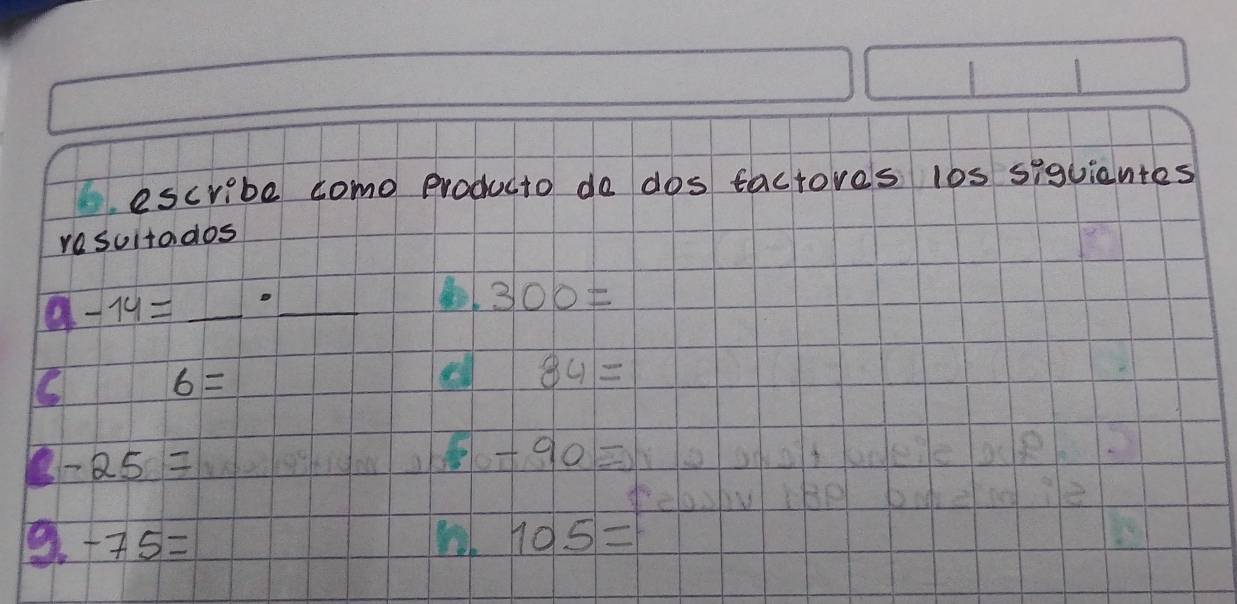 6. escribe como Producto de dos factores los siguientes
resultados
a -14 = ___ · ___ b. 300 =
c 6 = d 84 =
e -25 = f -90 =
g. -75 = h. 105 =